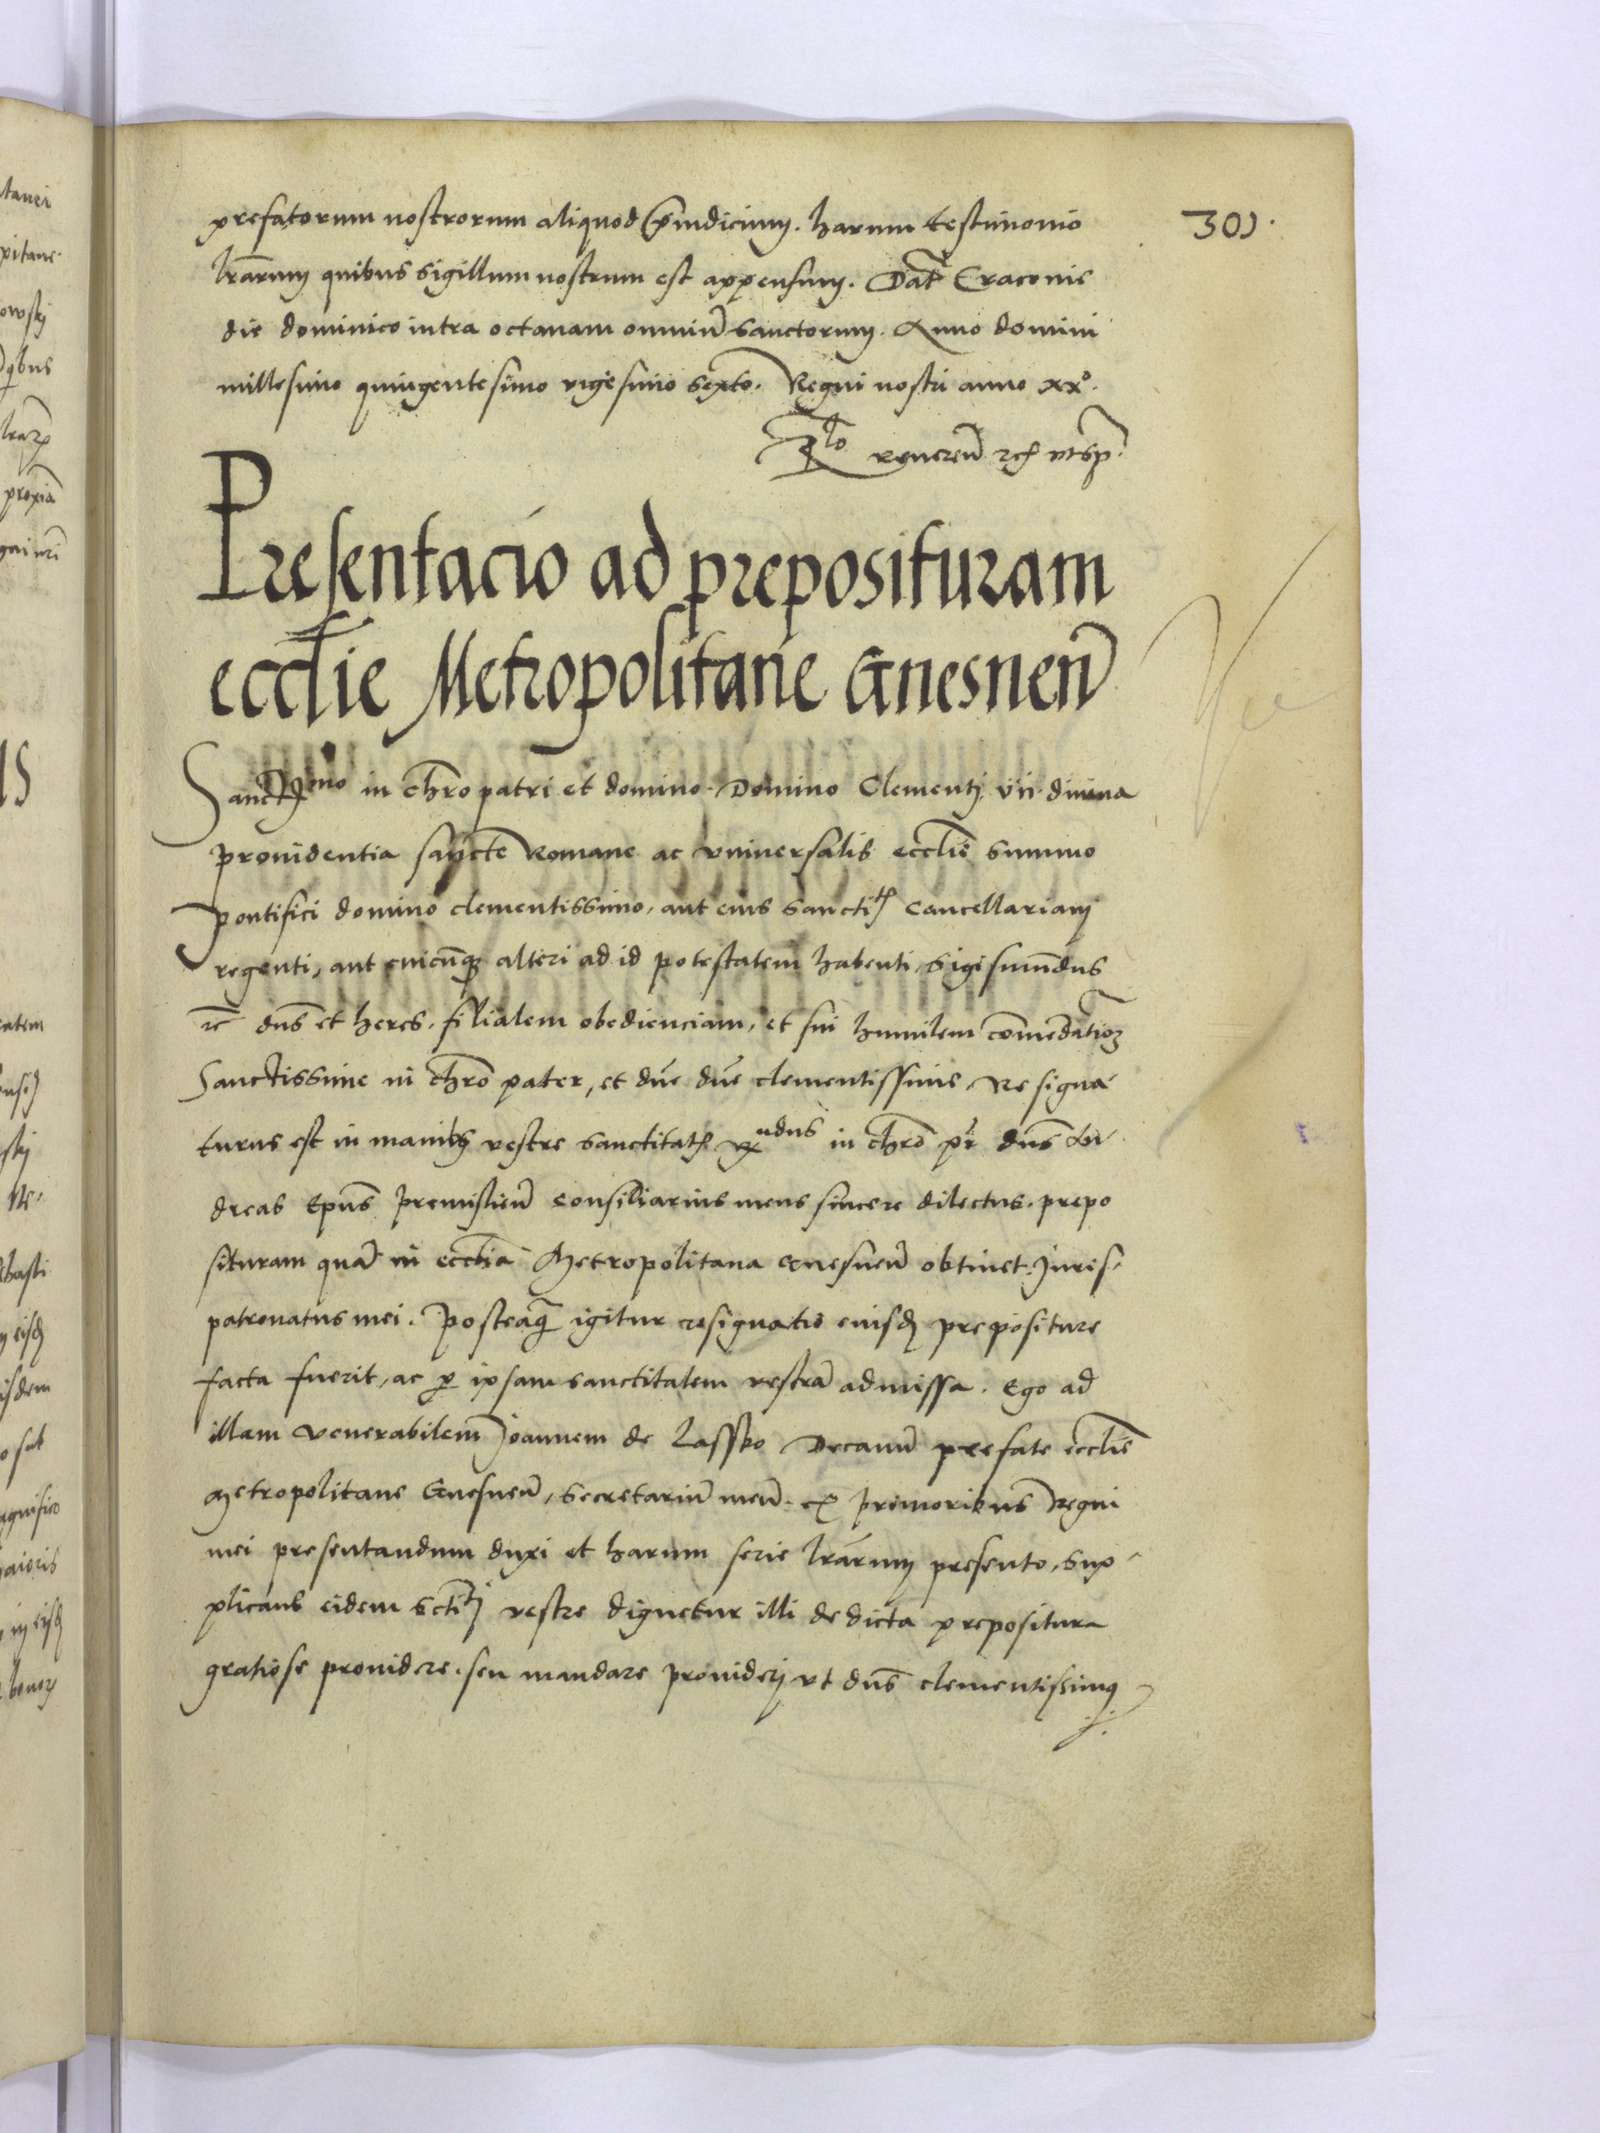 301.
prefatorum nostrorum aliquod preiudicium. harum testimonio
lrarum quibus sigillum nostrum est appensum. Dat Cracovie
die dominico intra octavam omniu sanctorum. Anno domini
millesimo quingentesimo vigesimo sexto. Regni nostri anno xxº.
Rlo reveren rch vtsp.
Presentacio ad preposituram
ecclie Metropolitane Gnesnen
Sanctmo in Chro patri et domino. Domino Clementi vii. divina
providentia sancte Romane ac vniversalis ecclie summo
pontifici domino clementissimo, aut eius sanctitis Cancellariam
regenti, aut cuicunque alteri ad id potestatem habenti, Sigismundus
rc dns et heres. filialem obedienciam, et sui humilem comendation
Sanctissime in chro pater, et dne dne clementissime. Resigna-
turus est in manibus vestre sanctitatis Rndus in chro pr dns An
dreas Epus premislien consiliarius meus sincere dilectus. prepo
situram qua in ecclia Metropolitana Gnesnen obtinet. Juris-
patronatus mei. Posteaq igitur resignatio eiusd prepositure
facta fuerit, ac p ipsam sanctitatem vestra admissa. Ego ad
illam venerabilem Joannem de Lassko Decanu prefate ecclie
Metropolitane Gnesnen, Secretariu meu. ex primoribus Regni
mei presentandum duxi et harum serie lrarum presento, Sup-
plicans eidem Sctiti vestre dignetur illi de dicta prepositura
gratiose providere. seu mandare provideri vt dns clementissimus